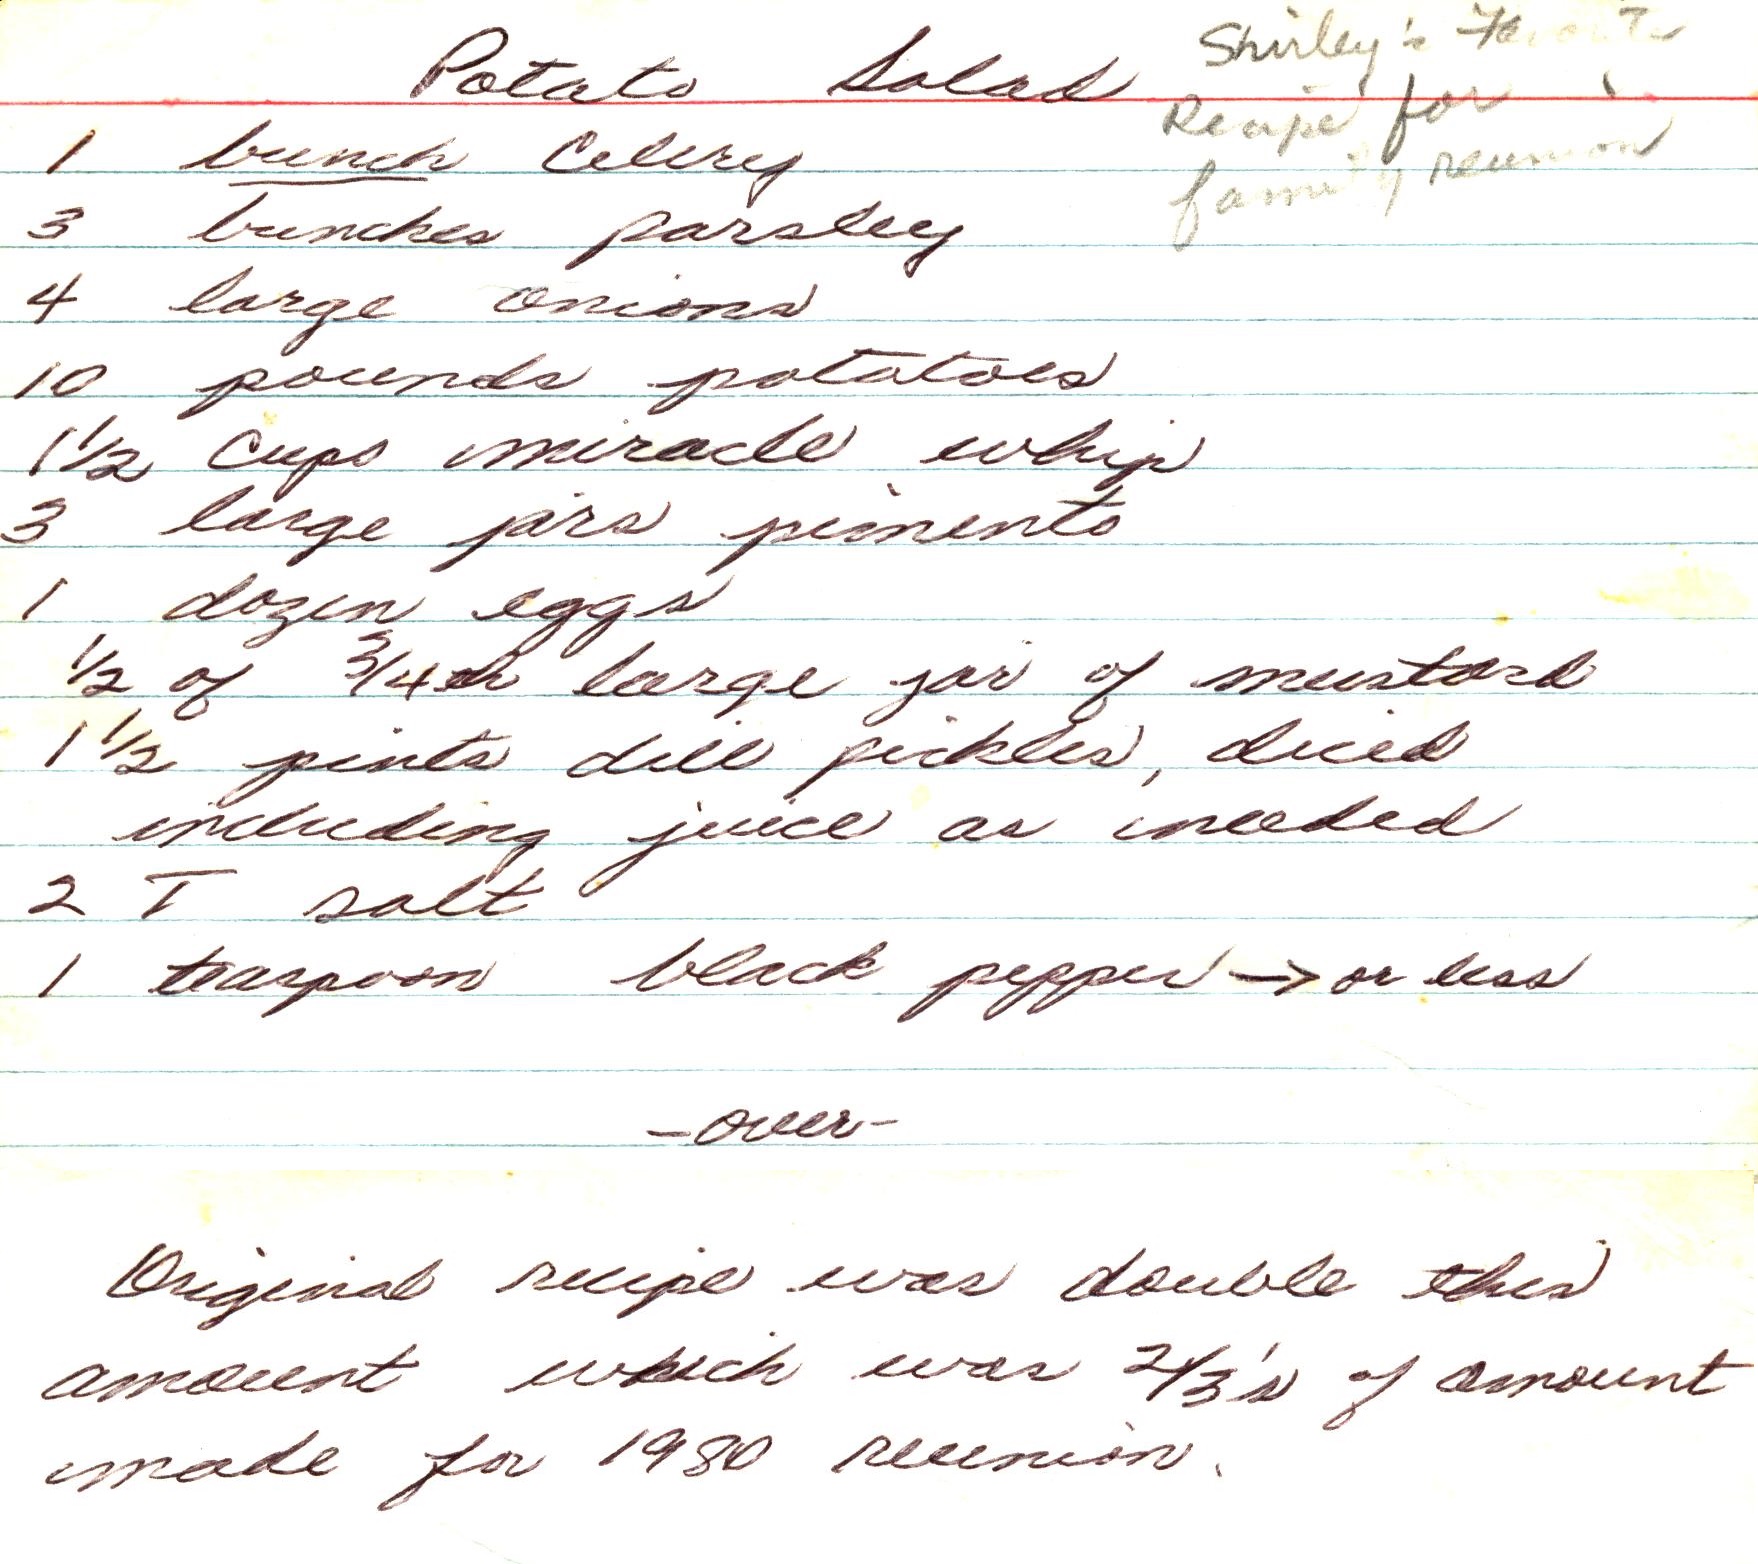 Potato Salad
Shirley's Favorite
Recipe for
family reunion
1 bunch Celery
3 bunches parsley
4 large onions
10 pounds potatoes
1 1/2 cups miracle whip
3 large jars pimento
1 dozen eggs
1/2 of 3/4th large jar of mustard
1 1/2 pints dill pickles, diced
including juice as needed
2 T salt
1 teaspoon black pepper → or less
-over-
Original recipe was double this
amount which was 2/3's of amount
made for 1980 reunion.